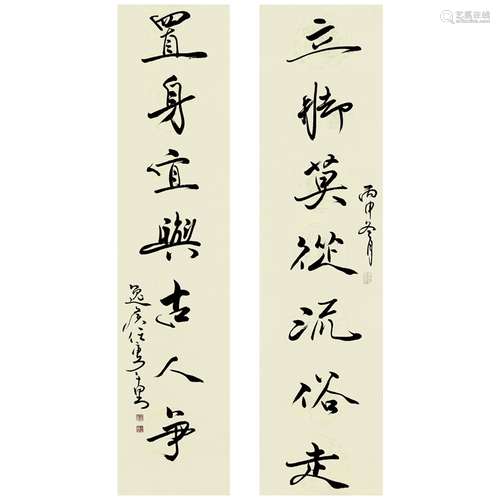 立腳莫從流俗走
丙申冬月
置身宜與古人爭